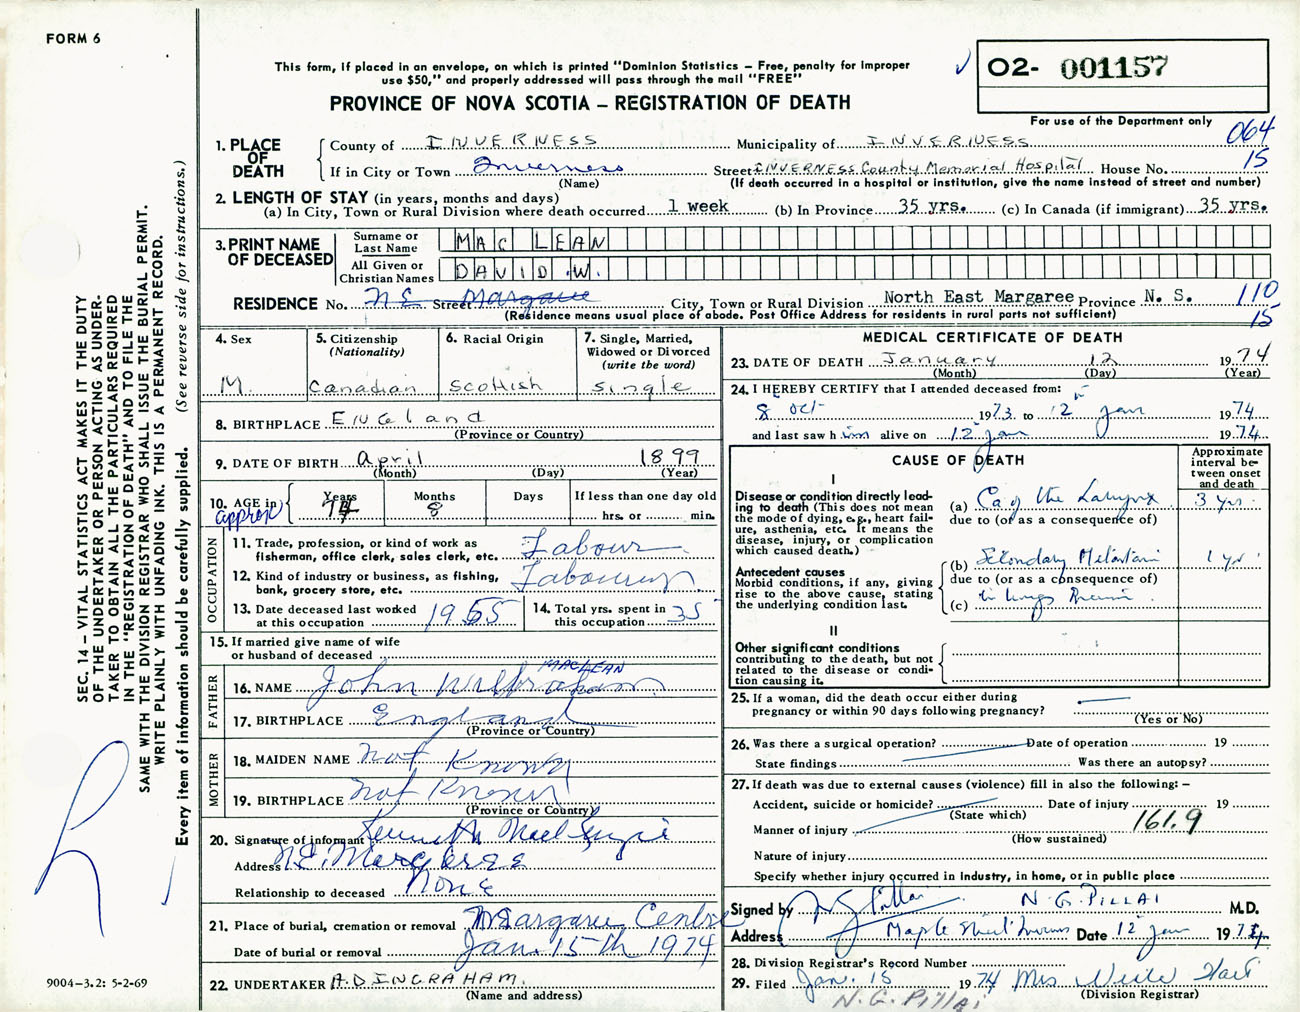 FORM 6
This form, if placed in an envelope, on which is printed "Dominion Statistics – Free, penalty for improper
use $50," and properly addressed will pass through the mail "FREE"
PROVINCE OF NOVA SCOTIA – REGISTRATION OF DEATH
O2- 001157
For use of the Department only
064
15
1. PLACE OF DEATH
County of INVERNESS Municipality of INVERNESS
If in City or Town Inverness Street INVERNESS County Memorial Hospital House No.
(Name) (If death occurred in a hospital or institution, give the name instead of street and number)
2. LENGTH OF STAY (in years, months and days)
(a) In City, Town or Rural Division where death occurred 1 week (b) In Province 35 yrs. (c) In Canada (if immigrant) 35 yrs.
3. PRINT NAME OF DECEASED
Surname or Last Name MAC LEAN
All Given or Christian Names DAVID .W.
RESIDENCE No. N E Street Margaree City, Town or Rural Division North East Margaree Province N. S. 110
(Residence means usual place of abode. Post Office Address for residents in rural parts not sufficient) 15
4. Sex
M.
5. Citizenship (Nationality)
Canadian
6. Racial Origin
Scottish
7. Single, Married, Widowed or Divorced (write the word)
Single
8. BIRTHPLACE England
(Province or Country)
9. DATE OF BIRTH April 1899
(Month) (Day) (Year)
10. AGE in approx
Years 74 Months 8 Days If less than one day old
hrs. or min.
OCCUPATION
11. Trade, profession, or kind of work as
fisherman, office clerk, sales clerk, etc. Labour
12. Kind of industry or business, as fishing,
bank, grocery store, etc. Labouring
13. Date deceased last worked
at this occupation 1955
14. Total yrs. spent in
this occupation 35
15. If married give name of wife
or husband of deceased
FATHER
MACLEAN
16. NAME John Wilbraham
17. BIRTHPLACE England
(Province or Country)
MOTHER
18. MAIDEN NAME not Known
19. BIRTHPLACE not Known
(Province or Country)
20. Signature of informant Kenneth
Address N.E. Margaree
Relationship to deceased None
21. Place of burial, cremation or removal Margaree Centre
Date of burial or removal Jan. 15th 1974
22. UNDERTAKER A.D INGRAHAM.
(Name and address)
MEDICAL CERTIFICATE OF DEATH
23. DATE OF DEATH January 12 1974
(Month) (Day) (Year)
24. I HEREBY CERTIFY that I attended deceased from:
8 oct 1973 to 12 Jan 1974
and last saw him alive on 12 Jan 1974
CAUSE OF DEATH
Approximate interval between onset and death
I
Disease or condition directly leading to death (This does not mean
the mode of dying, e.g., heart failure, asthenia, etc. It means the
disease, injury, or complication
which caused death.)
(a) Ca of the Larynx 3 yrs.
due to (or as a consequence of)
Antecedent causes
Morbid conditions, if any, giving
rise to the above cause, stating
the underlying condition last.
(b) Secondary 1 yr
due to (or as a consequence of)
(c) in lungs
II
Other significant conditions
contributing to the death, but not
related to the disease or condition causing it.
25. If a woman, did the death occur either during
pregnancy or within 90 days following pregnancy?
(Yes or No)
26. Was there a surgical operation? Date of operation 19
State findings Was there an autopsy?
27. If death was due to external causes (violence) fill in also the following: –
Accident, suicide or homicide? Date of injury 19
(State which)
Manner of injury 161.9
(How sustained)
Nature of injury
Specify whether injury occurred in industry, in home, or in public place
Signed by N G Pillai N. G. PILLAI M.D.
Address Maple Street Date 12 Jan 1974
28. Division Registrar's Record Number
29. Filed Jan. 15 1974 Mrs Hart
N. G. Pillai (Division Registrar)
SEC. 14 – VITAL STATISTICS ACT MAKES IT THE DUTY
OF THE UNDERTAKER OR PERSON ACTING AS UNDER-
TAKER TO OBTAIN ALL THE PARTICULARS REQUIRED
IN THE "REGISTRATION OF DEATH" AND TO FILE THE
SAME WITH THE DIVISION REGISTRAR WHO SHALL ISSUE THE BURIAL PERMIT.
WRITE PLAINLY WITH UNFADING INK. THIS IS A PERMANENT RECORD.
Every item of information should be carefully supplied. (See reverse side for instructions.)
9004-3.2: 5-2-69